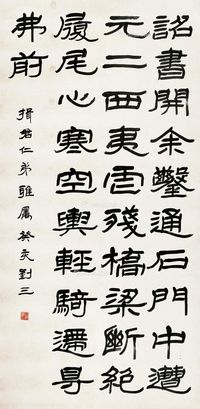 詔書開余鑿通石門中遭
元二西夷虐殘橋梁斷絕
履尾心寒空輿輕騎遰㝵
弗前
揖君仁弟雅屬 癸亥劉三